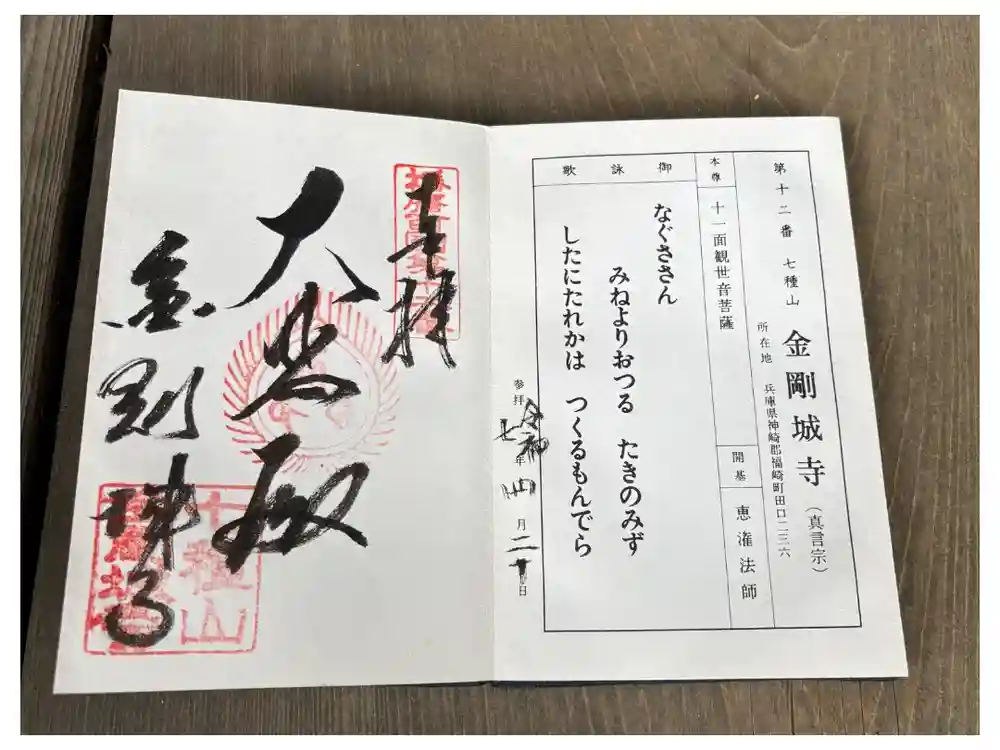 第十二番 七種山 金剛城寺（真言宗）
所在地 兵庫県神崎郡福崎町田口二三六
本尊 十一面観世音菩薩
開基 恵潅法師
御詠歌
なぐささん
みねよりおつる たきのみず
したにたれかは つくるもんでら
参拝 令和七年四月二十日
奉拝
大悲殿
金剛城寺
七種山